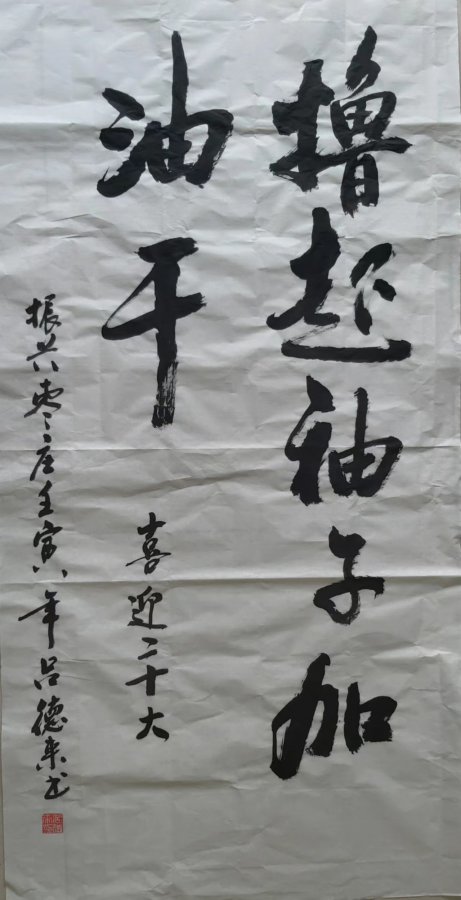 撸起袖子加
油干
喜迎二十大
振兴枣庄壬寅年吕德来书